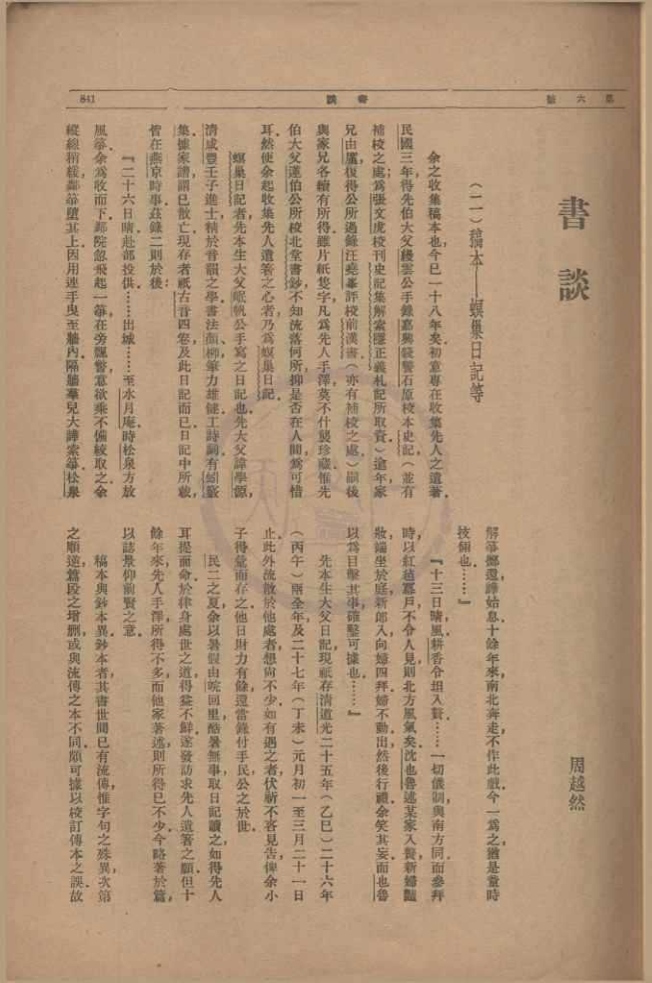 第六號
書談
841
書談
周越然
(二)稿本——螟巢日記等
余之收集稿本也今已一十八年矣初意專在收集先人之遺著．
民國三年得先伯大父縵雲公手錄嘉興錢警石原校本史記(並有
補校之處；爲張文虎校刊史記集解索隱正義札記所取資)逾年家
兄由廬復得公所過錄汪堯峯評校前漢書(亦有補校之處)嗣後
與家兄各續有所得雖片紙隻字凡爲先人手澤莫不什襲珍藏惟先
伯大父蓮伯公所校北堂書鈔不知流落何所，抑是否在人間爲可惜
耳然使余起收集先人遺著之心者乃爲螟巢日記．
螟巢日記者先本生大父岷帆公手寫之日記也先大父諱學源，
清咸豐壬子進士，精於音韻之學書法顏柳筆力雄健工詩詞有
集．據家譜謂已散亡現存者祇古音四卷及此日記而已日記中所載，
皆在燕京時事茲錄二則於後：
『二十六日晴赴部投供……出城……至水月庵時松泉方放
風箏，余爲收而下．鄰院忽飛起一箏在旁飄瞥意欲乘不備絞取之余
縱線稍緩鄰箏墮其上因用連手曳至牆內隔牆羣兒大譁索箏．松泉
解箏擲還譁始息．十餘年來南北奔走，不作此戲今一爲之猶是童時
技倆也．……』
『十三日晴風耕香令坦入贅……一切儀制與南方同而參拜
時以紅氈幕戶不令人見則北方風氣矣沈也魯述某家入贅新婦豔
妝端坐於庭新郎入向婦四拜婦不動出然後行禮余笑其妄而也魯
以爲目擊其事確鑿可據也．……』
先本生大父日記現祇存清道光二十五年(乙巳)二十六年
(丙午)兩全年及二十七年(丁未)元月初一至三月二十一日
止此外流散於他處者，想尚不少如有遇之者伏祈不吝見告俾余小
子得彙而存之他日財力有餘還當錄付手民公之於世．
民二之夏余以暑假由皖回里酷暑無事取日記讀之如得先人
耳提面命於律身處世之道得益不鮮遂發訪求先人遺著之願但十
餘年來先人手澤所得不多而他家著述則所得已不少今略著於篇，
以誌景仰前賢之意．
稿本與鈔本異鈔本者其書世間已有流傳惟字句之殊異次第
之順逆篇段之增删或與流傳之本不同頗可據以校訂傳本之誤故